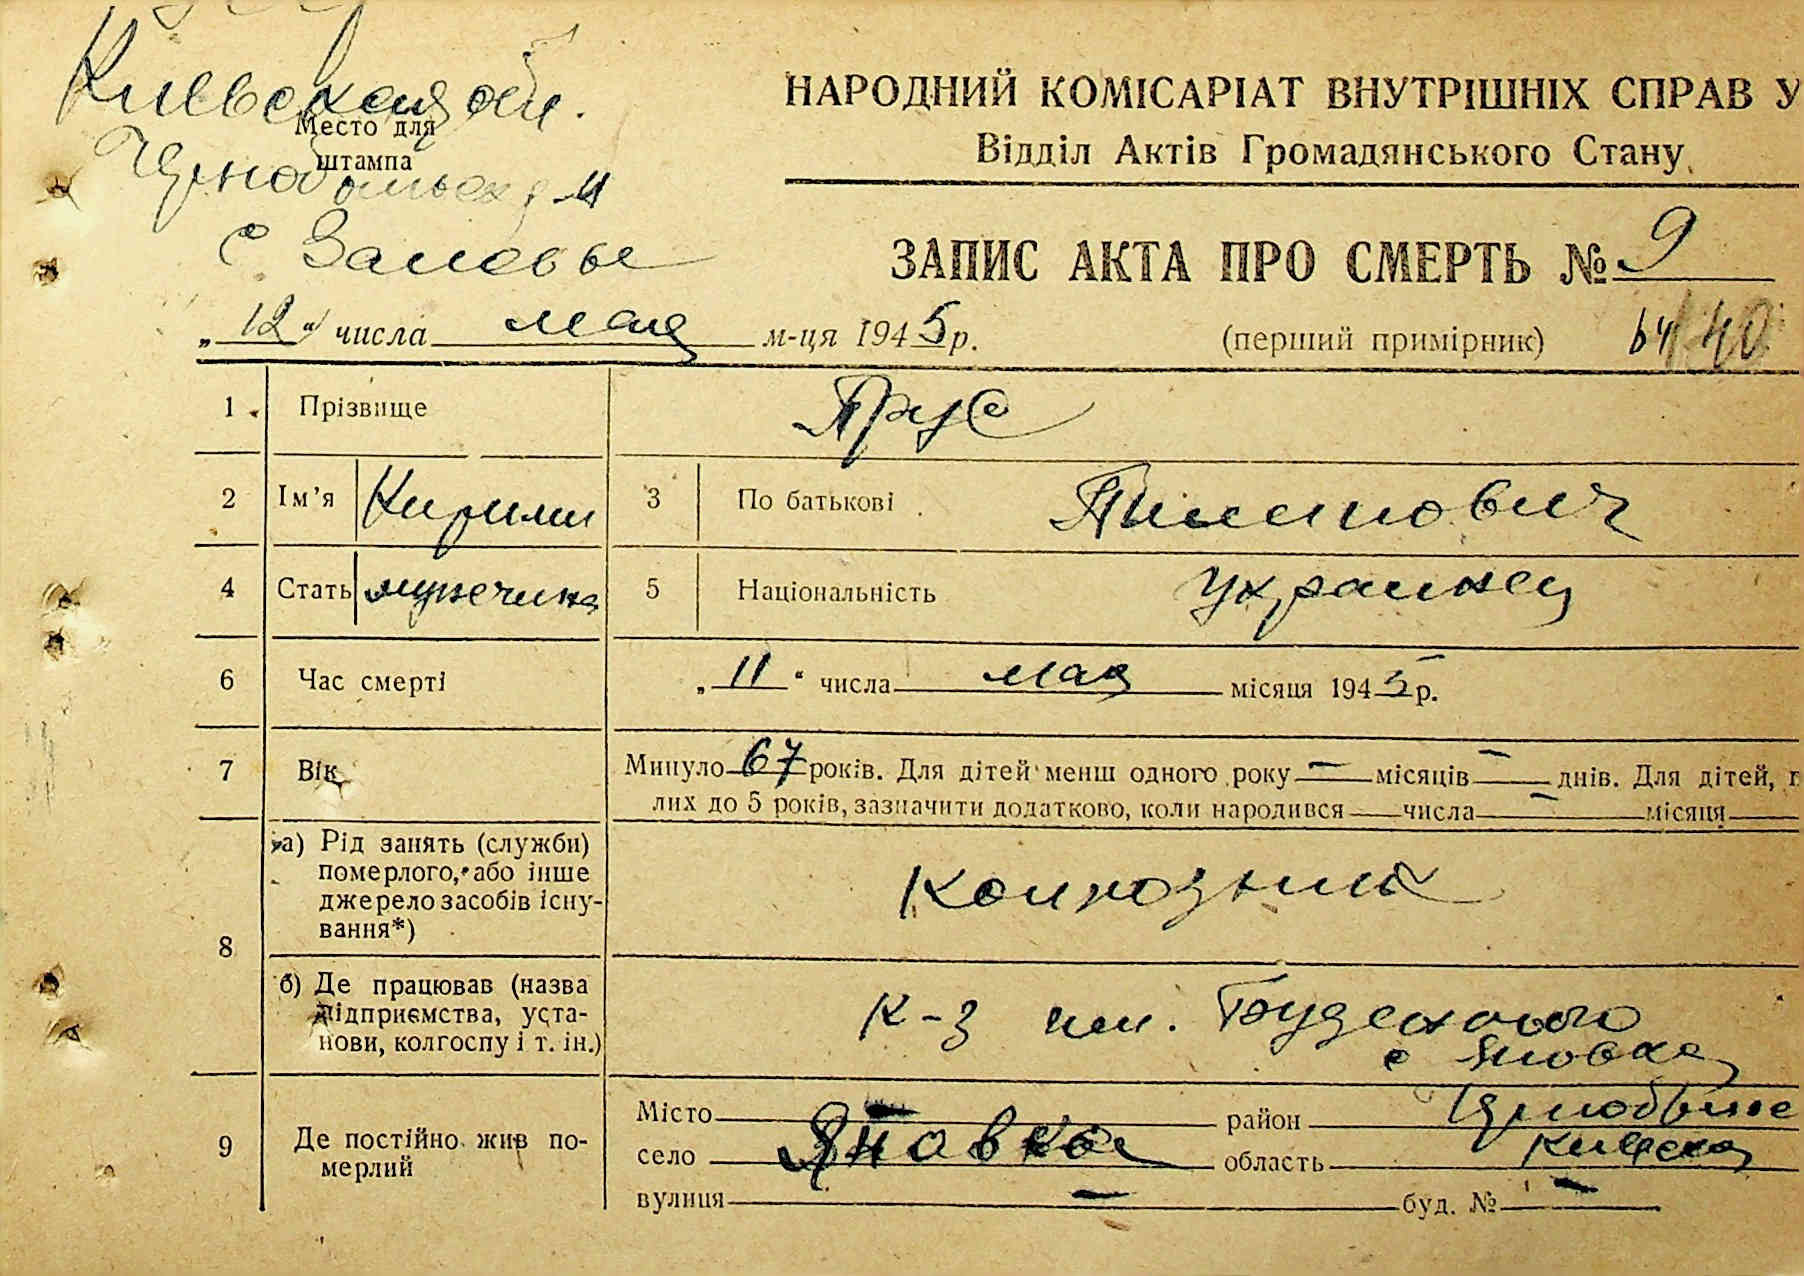 Киевская обл.
Место для
штампа
Чернобыльск р-н
с Залевье
НАРОДНИЙ КОМІСАРІАТ ВНУТРІШНІХ СПРАВ У
Відділ Актів Громадянського Стану
ЗАПИС АКТА ПРО СМЕРТЬ № 9
„12“ числа мая м-ця 1945 р.
(перший примірник) 40
1 Прізвище Прус
2 Ім'я Кирилл 3 По батькові Пименович
4 Стать мужчина 5 Національність Украинец
6 Час смерті „11“ числа мая місяця 1945 р.
7 Вік Минуло 67 років. Для дітей менш одного року — місяців — днів. Для дітей,
лих до 5 років, зазначити додатково, коли народився числа — місяця
8 а) Рід занять (служби)
померлого, або інше
джерело засобів існу-
вання*)
Колхозник
б) Де працював (назва
підприємства, уста-
нови, колгоспу і т. ін.)
к-з им. Буденного
с Яновка
9 Де постійно жив по-
мерлий
Місто — район Чернобыльс
село Яновка область Киевская
вулиця — буд. № —